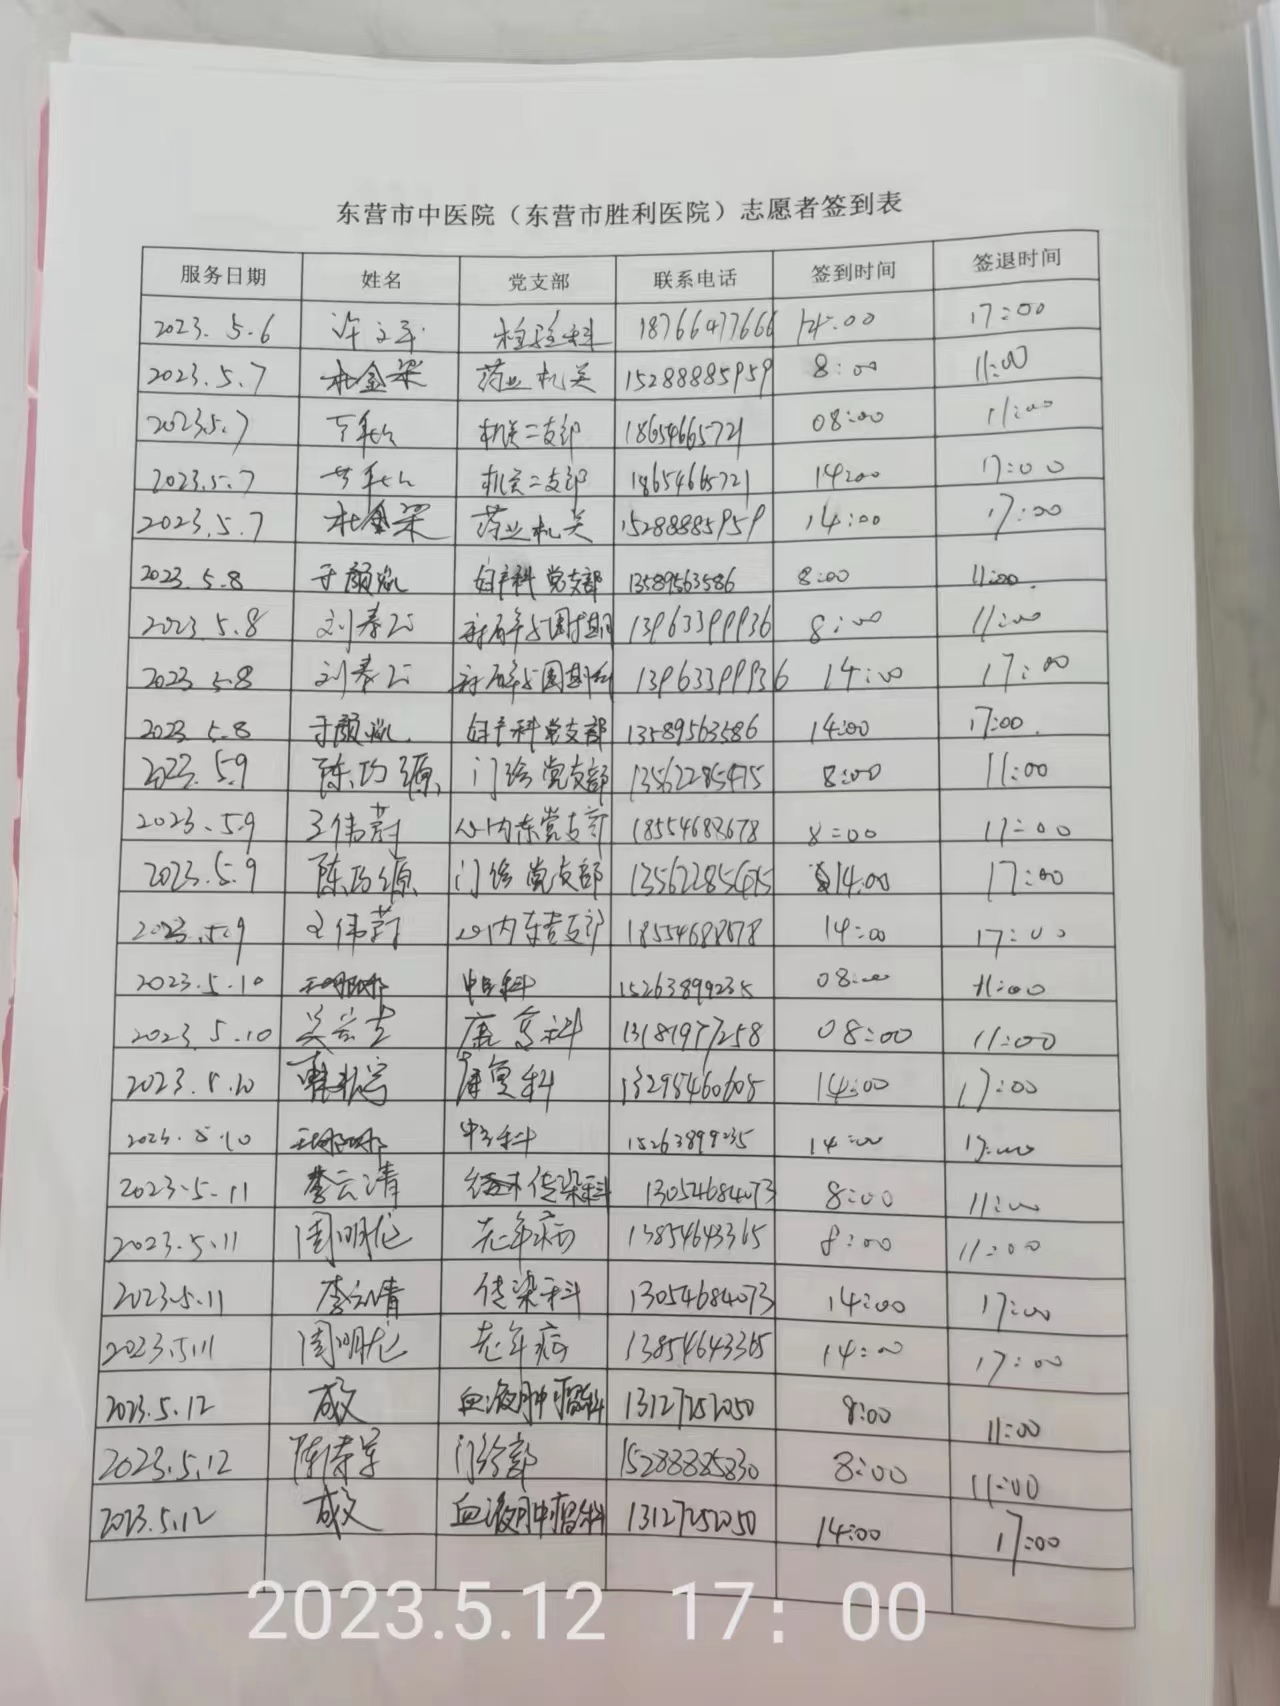 东营市中医院（东营市胜利医院）志愿者签到表
服务日期 姓名 党支部 联系电话 签到时间 签退时间
2023.5.6 检验科 18766477666 14:00 17:00
2023.5.7 杜金梁 药业机关 15288885959 8:00 11:00
2023.5.7 机关二支部 18654665721 08:00 11:00
2023.5.7 机关二支部 18654665721 14:00 17:00
2023.5.7 杜金梁 药业机关 15288885959 14:00 17:00
2023.5.8 于颜 妇产科党支部 13589563586 8:00 11:00.
2023.5.8 刘春 13963399936 8:00 11:00
2023.5.8 刘春 13963399936 14:00 17:00
2023.5.8 于颜 妇产科党支部 13589563586 14:00 17:00.
2023.5.9 陈巧源 门诊党支部 13562285475 8:00 11:00
2023.5.9 王伟蔚 心内东党支部 18554688678 8:00 17:00
2023.5.9 陈巧源 门诊党支部 13562285475 14:00 17:00
2023.5.9 王伟蔚 心内东党支部 18554688678 14:00 17:00
2023.5.10 中医科 15263899235 08:00 11:00
2023.5.10 康复科 13181977258 08:00 11:00
2023.5.10 康复科 13295460605 14:00 17:00
2023.5.10 15263899235 14:00 17:00
2023.5.11 李云清 传染科 13054684073 8:00 11:00
2023.5.11 周明龙 老年病 13854643365 8:00 11:00
2023.5.11 李云清 传染科 13054684073 14:00 17:00
2023.5.11 周明龙 老年病 13854643365 14:00 17:00
2023.5.12 成文 血液肿瘤科 13127252050 8:00 11:00
2023.5.12 门诊部 15288885830 8:00 11:00
2023.5.12 成文 血液肿瘤科 13127252050 14:00 17:00
2023.5.12 17：00